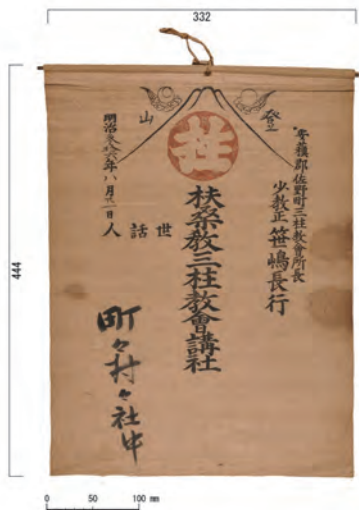 332
444
登山
安蘓郡佐野町三柱教會所長
少教正 笹嶋長行
柱
扶桑教三柱教會講社
世話人
明治 六年八月 日
町々村々社中
0 50 100 mm